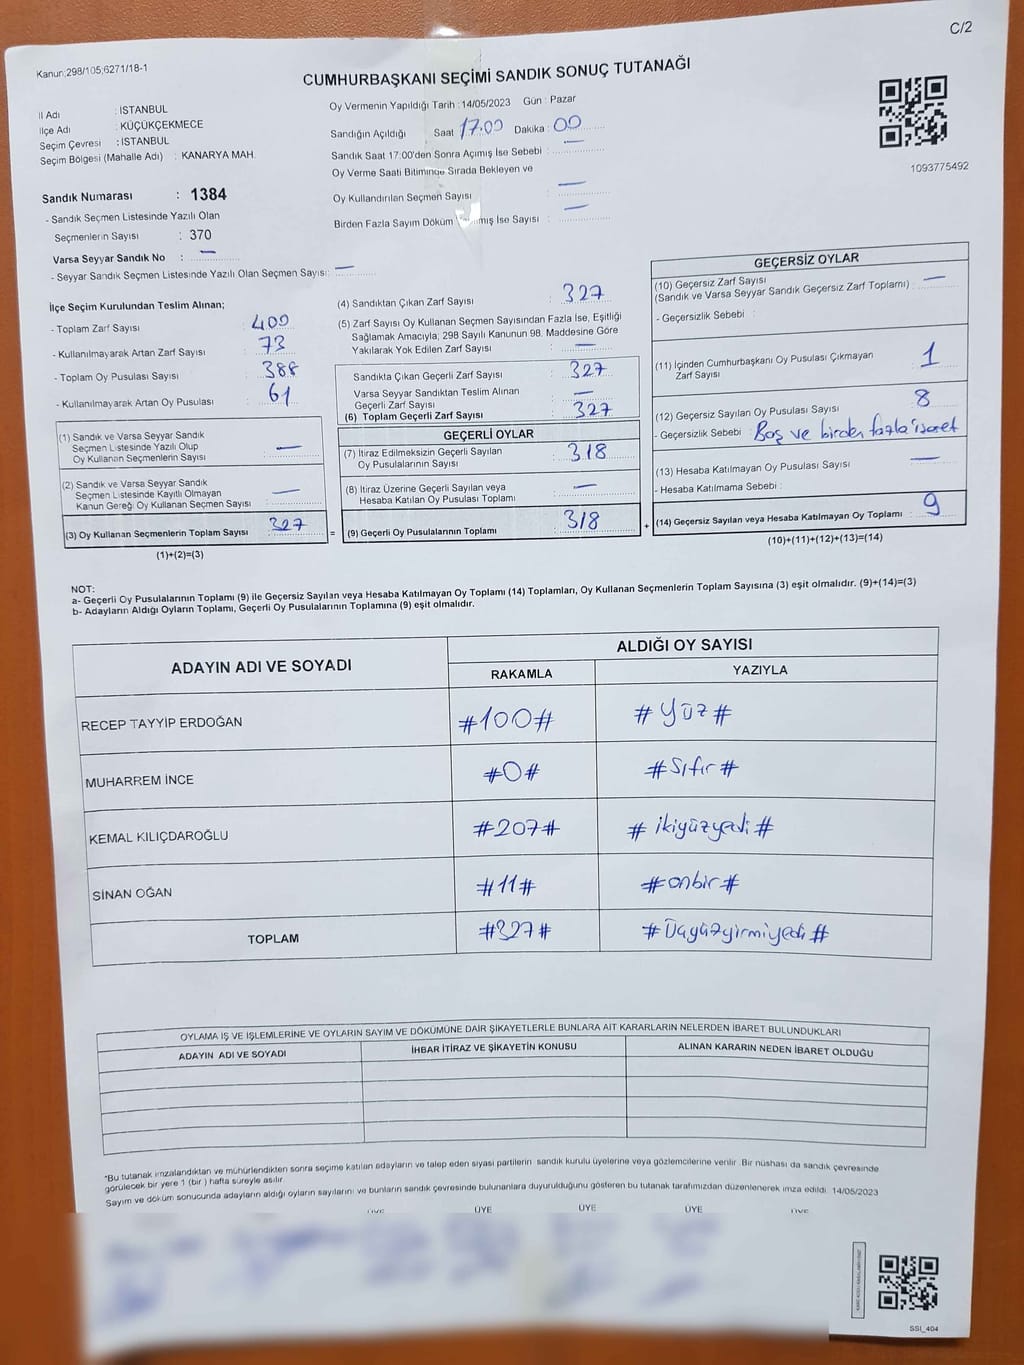 C/2
Kanun:298/105;6271/18-1
CUMHURBAŞKANI SEÇİMİ SANDIK SONUÇ TUTANAĞI
İl Adı : İSTANBUL
İlçe Adı : KÜÇÜKÇEKMECE
Seçim Çevresi : İSTANBUL
Seçim Bölgesi (Mahalle Adı) : KANARYA MAH.
Oy Vermenin Yapıldığı Tarih : 14/05/2023 Gün : Pazar
Sandığın Açıldığı Saat 17:00 Dakika : 00
Sandık Saat 17:00'den Sonra Açımış İse Sebebi : —
Oy Verme Saati Bitiminde Sırada Bekleyen ve
Oy Kullandırılan Seçmen Sayısı : —
Birden Fazla Sayım Döküm mış İse Sayısı : —
1093775492
Sandık Numarası : 1384
- Sandık Seçmen Listesinde Yazılı Olan
Seçmenlerin Sayısı : 370
Varsa Seyyar Sandık No : —
- Seyyar Sandık Seçmen Listesinde Yazılı Olan Seçmen Sayısı: —
İlçe Seçim Kurulundan Teslim Alınan;
- Toplam Zarf Sayısı : 400
- Kullanılmayarak Artan Zarf Sayısı : 73
- Toplam Oy Pusulası Sayısı : 388
- Kullanılmayarak Artan Oy Pusulası : 61
(1) Sandık ve Varsa Seyyar Sandık
Seçmen Listesinde Yazılı Olup
Oy Kullanan Seçmenlerin Sayısı : —
(2) Sandık ve Varsa Seyyar Sandık
Seçmen Listesinde Kayıtlı Olmayan
Kanun Gereği Oy Kullanan Seçmen Sayısı : —
(3) Oy Kullanan Seçmenlerin Toplam Sayısı : 327
(1)+(2)=(3)
(4) Sandıktan Çıkan Zarf Sayısı : 327
(5) Zarf Sayısı Oy Kullanan Seçmen Sayısından Fazla İse, Eşitliği
Sağlamak Amacıyla; 298 Sayılı Kanunun 98. Maddesine Göre
Yakılarak Yok Edilen Zarf Sayısı : —
Sandıkta Çıkan Geçerli Zarf Sayısı : 327
Varsa Seyyar Sandıktan Teslim Alınan
Geçerli Zarf Sayısı : —
(6) Toplam Geçerli Zarf Sayısı : 327
GEÇERLİ OYLAR
(7) İtiraz Edilmeksizin Geçerli Sayılan
Oy Pusulalarının Sayısı : 318
(8) İtiraz Üzerine Geçerli Sayılan veya
Hesaba Katılan Oy Pusulası Toplamı : —
= (9) Geçerli Oy Pusulalarının Toplamı : 318 +
GEÇERSİZ OYLAR
(10) Geçersiz Zarf Sayısı
(Sandık ve Varsa Seyyar Sandık Geçersiz Zarf Toplamı) : —
- Geçersizlik Sebebi :
(11) İçinden Cumhurbaşkanı Oy Pusulası Çıkmayan
Zarf Sayısı : 1
(12) Geçersiz Sayılan Oy Pusulası Sayısı : 8
- Geçersizlik Sebebi : Boş ve birden fazla işaret
(13) Hesaba Katılmayan Oy Pusulası Sayısı : —
- Hesaba Katılmama Sebebi :
(14) Geçersiz Sayılan veya Hesaba Katılmayan Oy Toplamı : 9
(10)+(11)+(12)+(13)=(14)
NOT:
a- Geçerli Oy Pusulalarının Toplamı (9) ile Geçersiz Sayılan veya Hesaba Katılmayan Oy Toplamı (14) Toplamları, Oy Kullanan Seçmenlerin Toplam Sayısına (3) eşit olmalıdır. (9)+(14)=(3)
b- Adayların Aldığı Oyların Toplamı, Geçerli Oy Pusulalarının Toplamına (9) eşit olmalıdır.
ADAYIN ADI VE SOYADI ALDIĞI OY SAYISI
RAKAMLA YAZIYLA
RECEP TAYYİP ERDOĞAN #100# #Yüz#
MUHARREM İNCE #0# #Sıfır#
KEMAL KILIÇDAROĞLU #207# #ikiyüzyedi#
SİNAN OĞAN #11# #onbir#
TOPLAM #327# #Üçyüzyirmiyedi#
OYLAMA İŞ VE İŞLEMLERİNE VE OYLARIN SAYIM VE DÖKÜMÜNE DAİR ŞİKAYETLERLE BUNLARA AİT KARARLARIN NELERDEN İBARET BULUNDUKLARI
ADAYIN ADI VE SOYADI İHBAR İTİRAZ VE ŞİKAYETİN KONUSU ALINAN KARARIN NEDEN İBARET OLDUĞU
*Bu tutanak imzalandıktan ve mühürlendikten sonra seçime katılan adayların ve talep eden siyasi partilerin sandık kurulu üyelerine veya gözlemcilerine verilir. Bir nüshası da sandık çevresinde
görülecek bir yere 1 (bir ) hafta süreyle asılır.
Sayım ve döküm sonucunda adayların aldığı oyların sayılarını ve bunların sandık çevresinde bulunanlara duyurulduğunu gösteren bu tutanak tarafımızdan düzenlenerek imza edildi. 14/05/2023
ÜYE ÜYE ÜYE ÜYE ÜYE
SSI_404